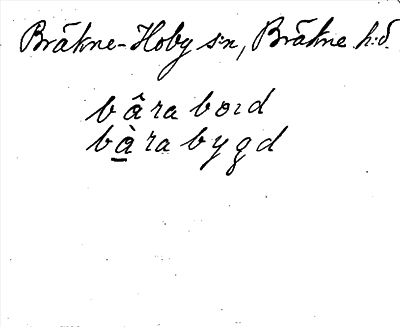 Bräkne-Hoby s:n, Bräkne h:d.
bâra boıd
bàra bygd